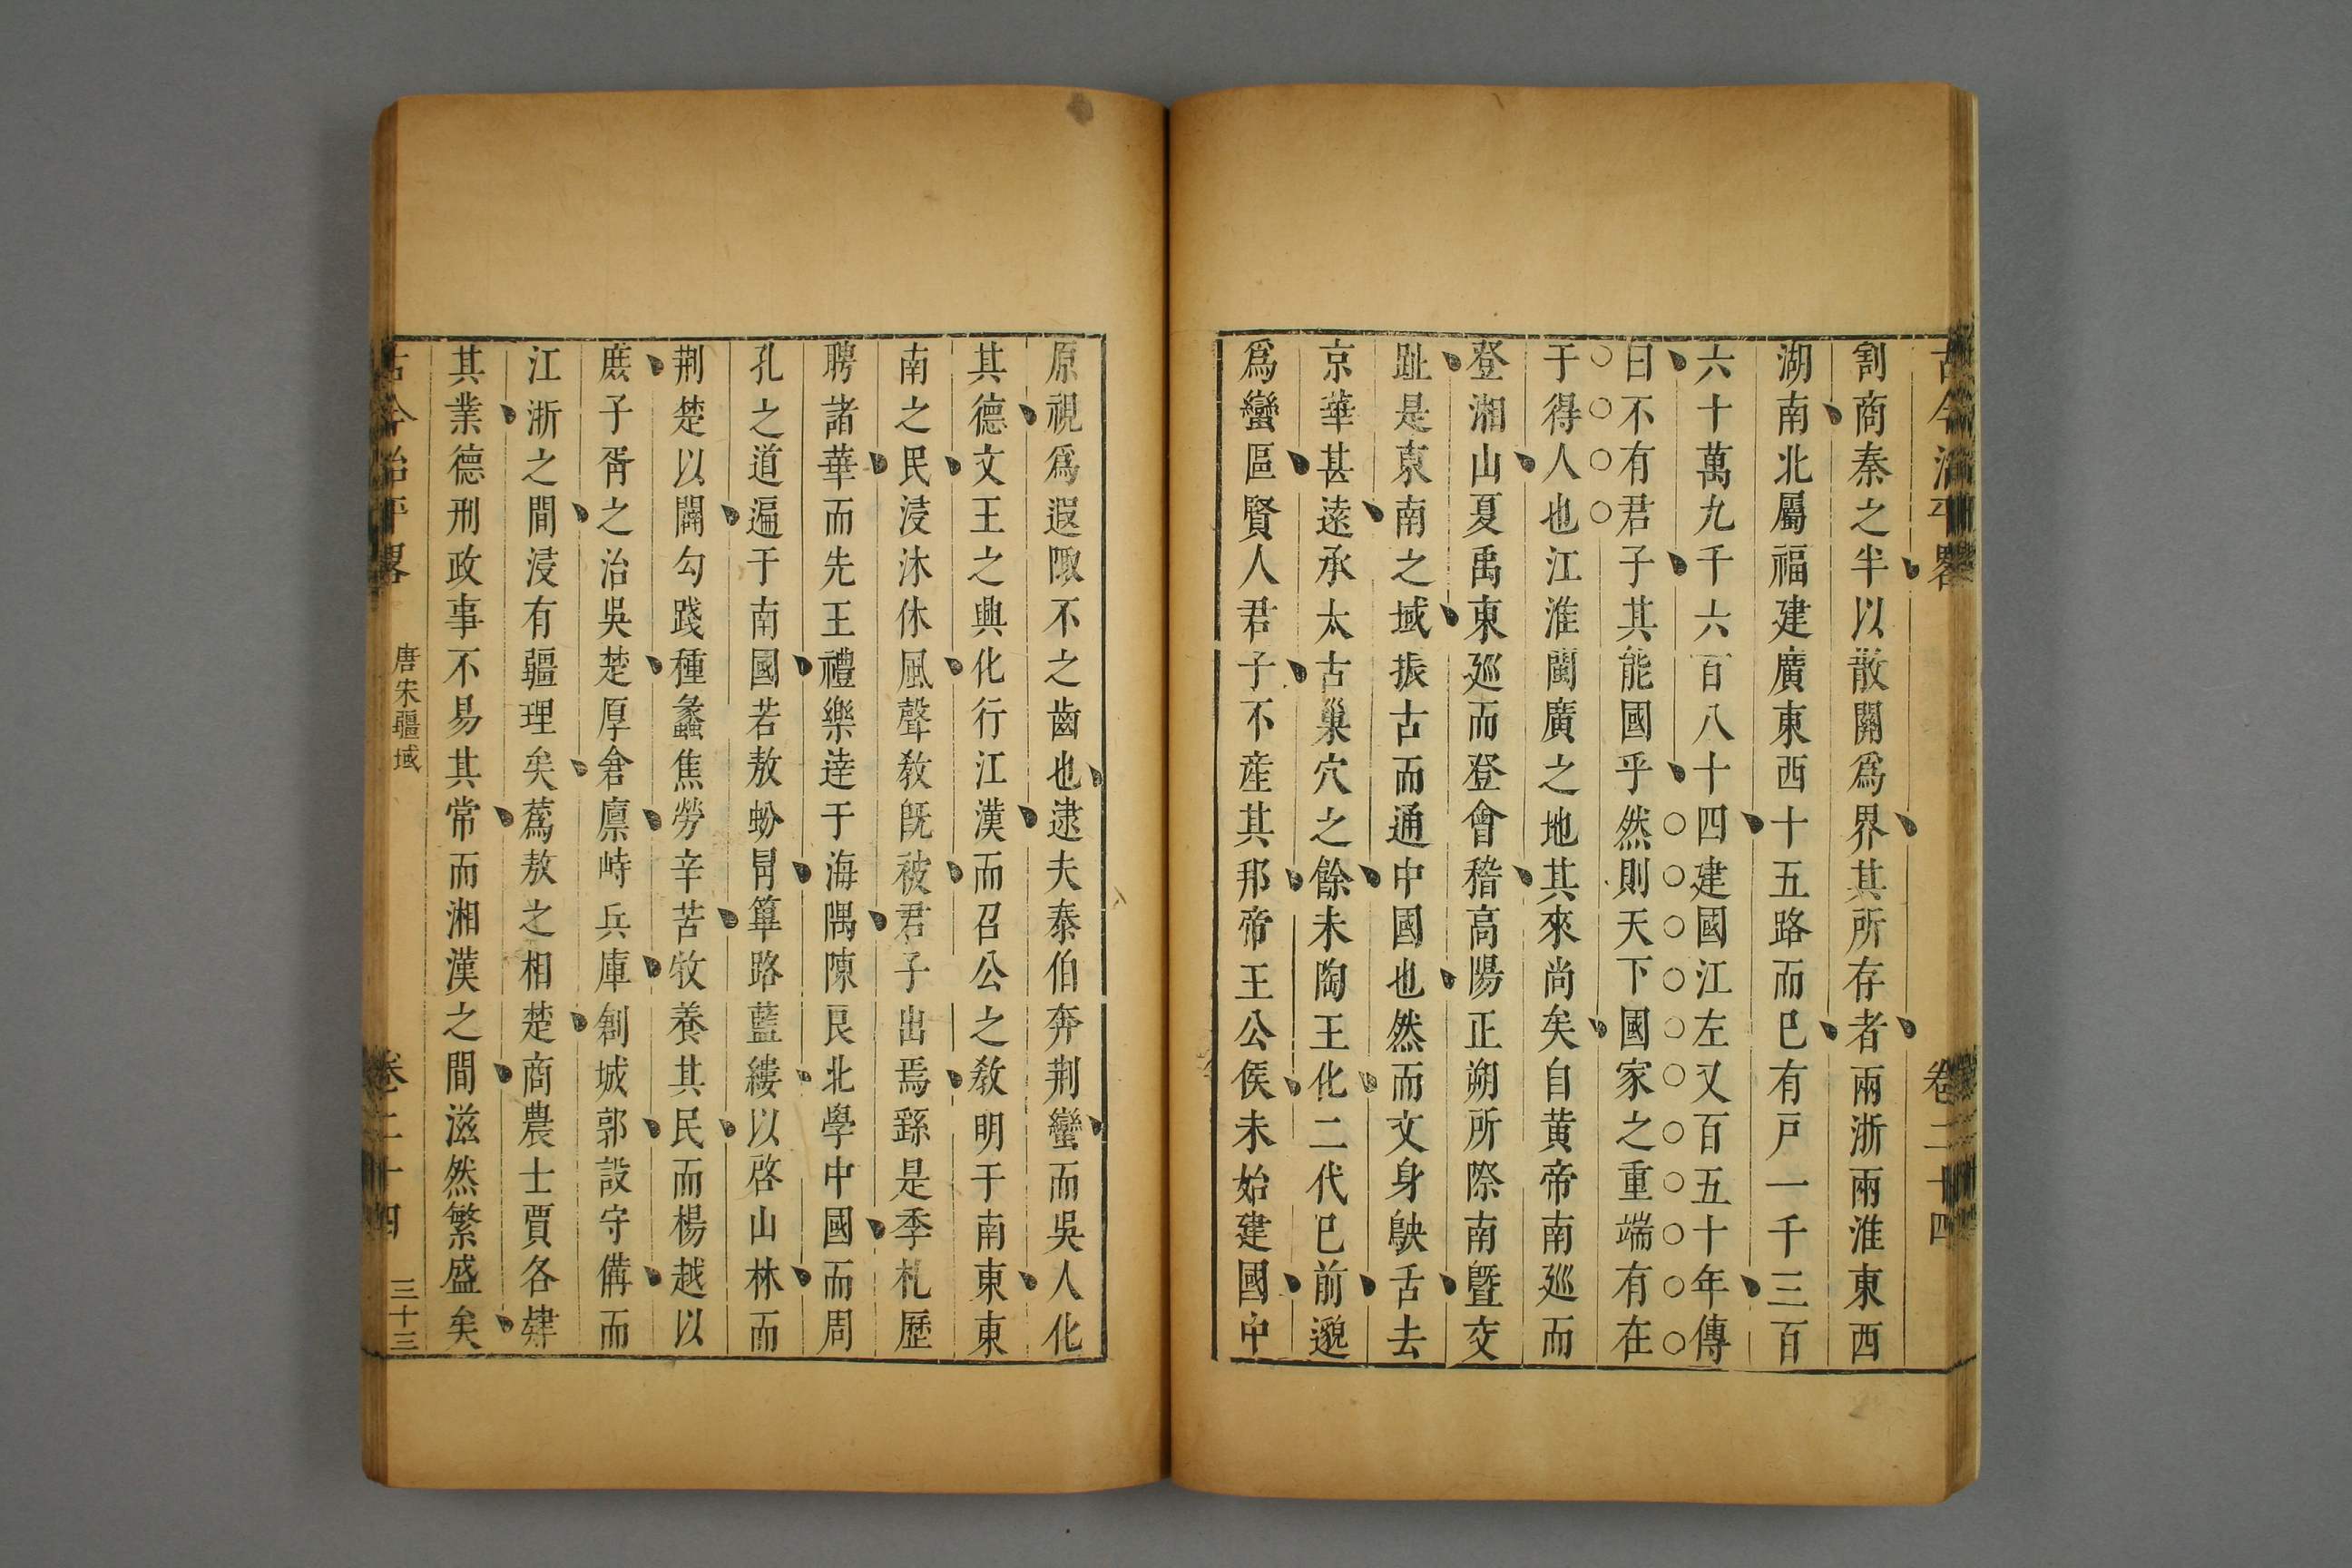 古今治平畧 卷二十四
割商秦之半以散關爲界其所存者兩浙兩淮東西
湖南北屬福建廣東西十五路而已有戸一千三百
六十萬九千六百八十四建國江左又百五十年傳
曰不有君子其能國乎然則天下國家之重端有在
于得人也江淮閩廣之地其來尚矣自黃帝南廵而
登湘山夏禹東廵而登會稽高陽正朔所際南曁交
趾是東南之域振古而通中國也然而文身鴃舌去
京華甚遠承太古巢穴之餘未陶王化二代已前邈
爲蠻區賢人君子不産其邦帝王公侯未始建國中
原視爲遐陬不之齒也逮夫泰伯奔荆蠻而吳人化
其德文王之興化行江漢而召公之敎明于南東東
南之民浸沐休風聲敎旣被君子出焉繇是季札歷
聘諸華而先王禮樂逹于海隅陳良北學中國而周
孔之道遍于南國若敖蚡冐篳路藍縷以啓山林而
荆楚以闢勾踐種蠡焦勞辛苦牧養其民而楊越以
庶子胥之治吳楚厚倉廪峙兵庫創城郭設守備而
江浙之間浸有疆理矣蔿敖之相楚商農士賈各肄
其業德刑政事不易其常而湘漢之間滋然繁盛矣
古今治平畧 唐宋疆域 卷二十四 三十三